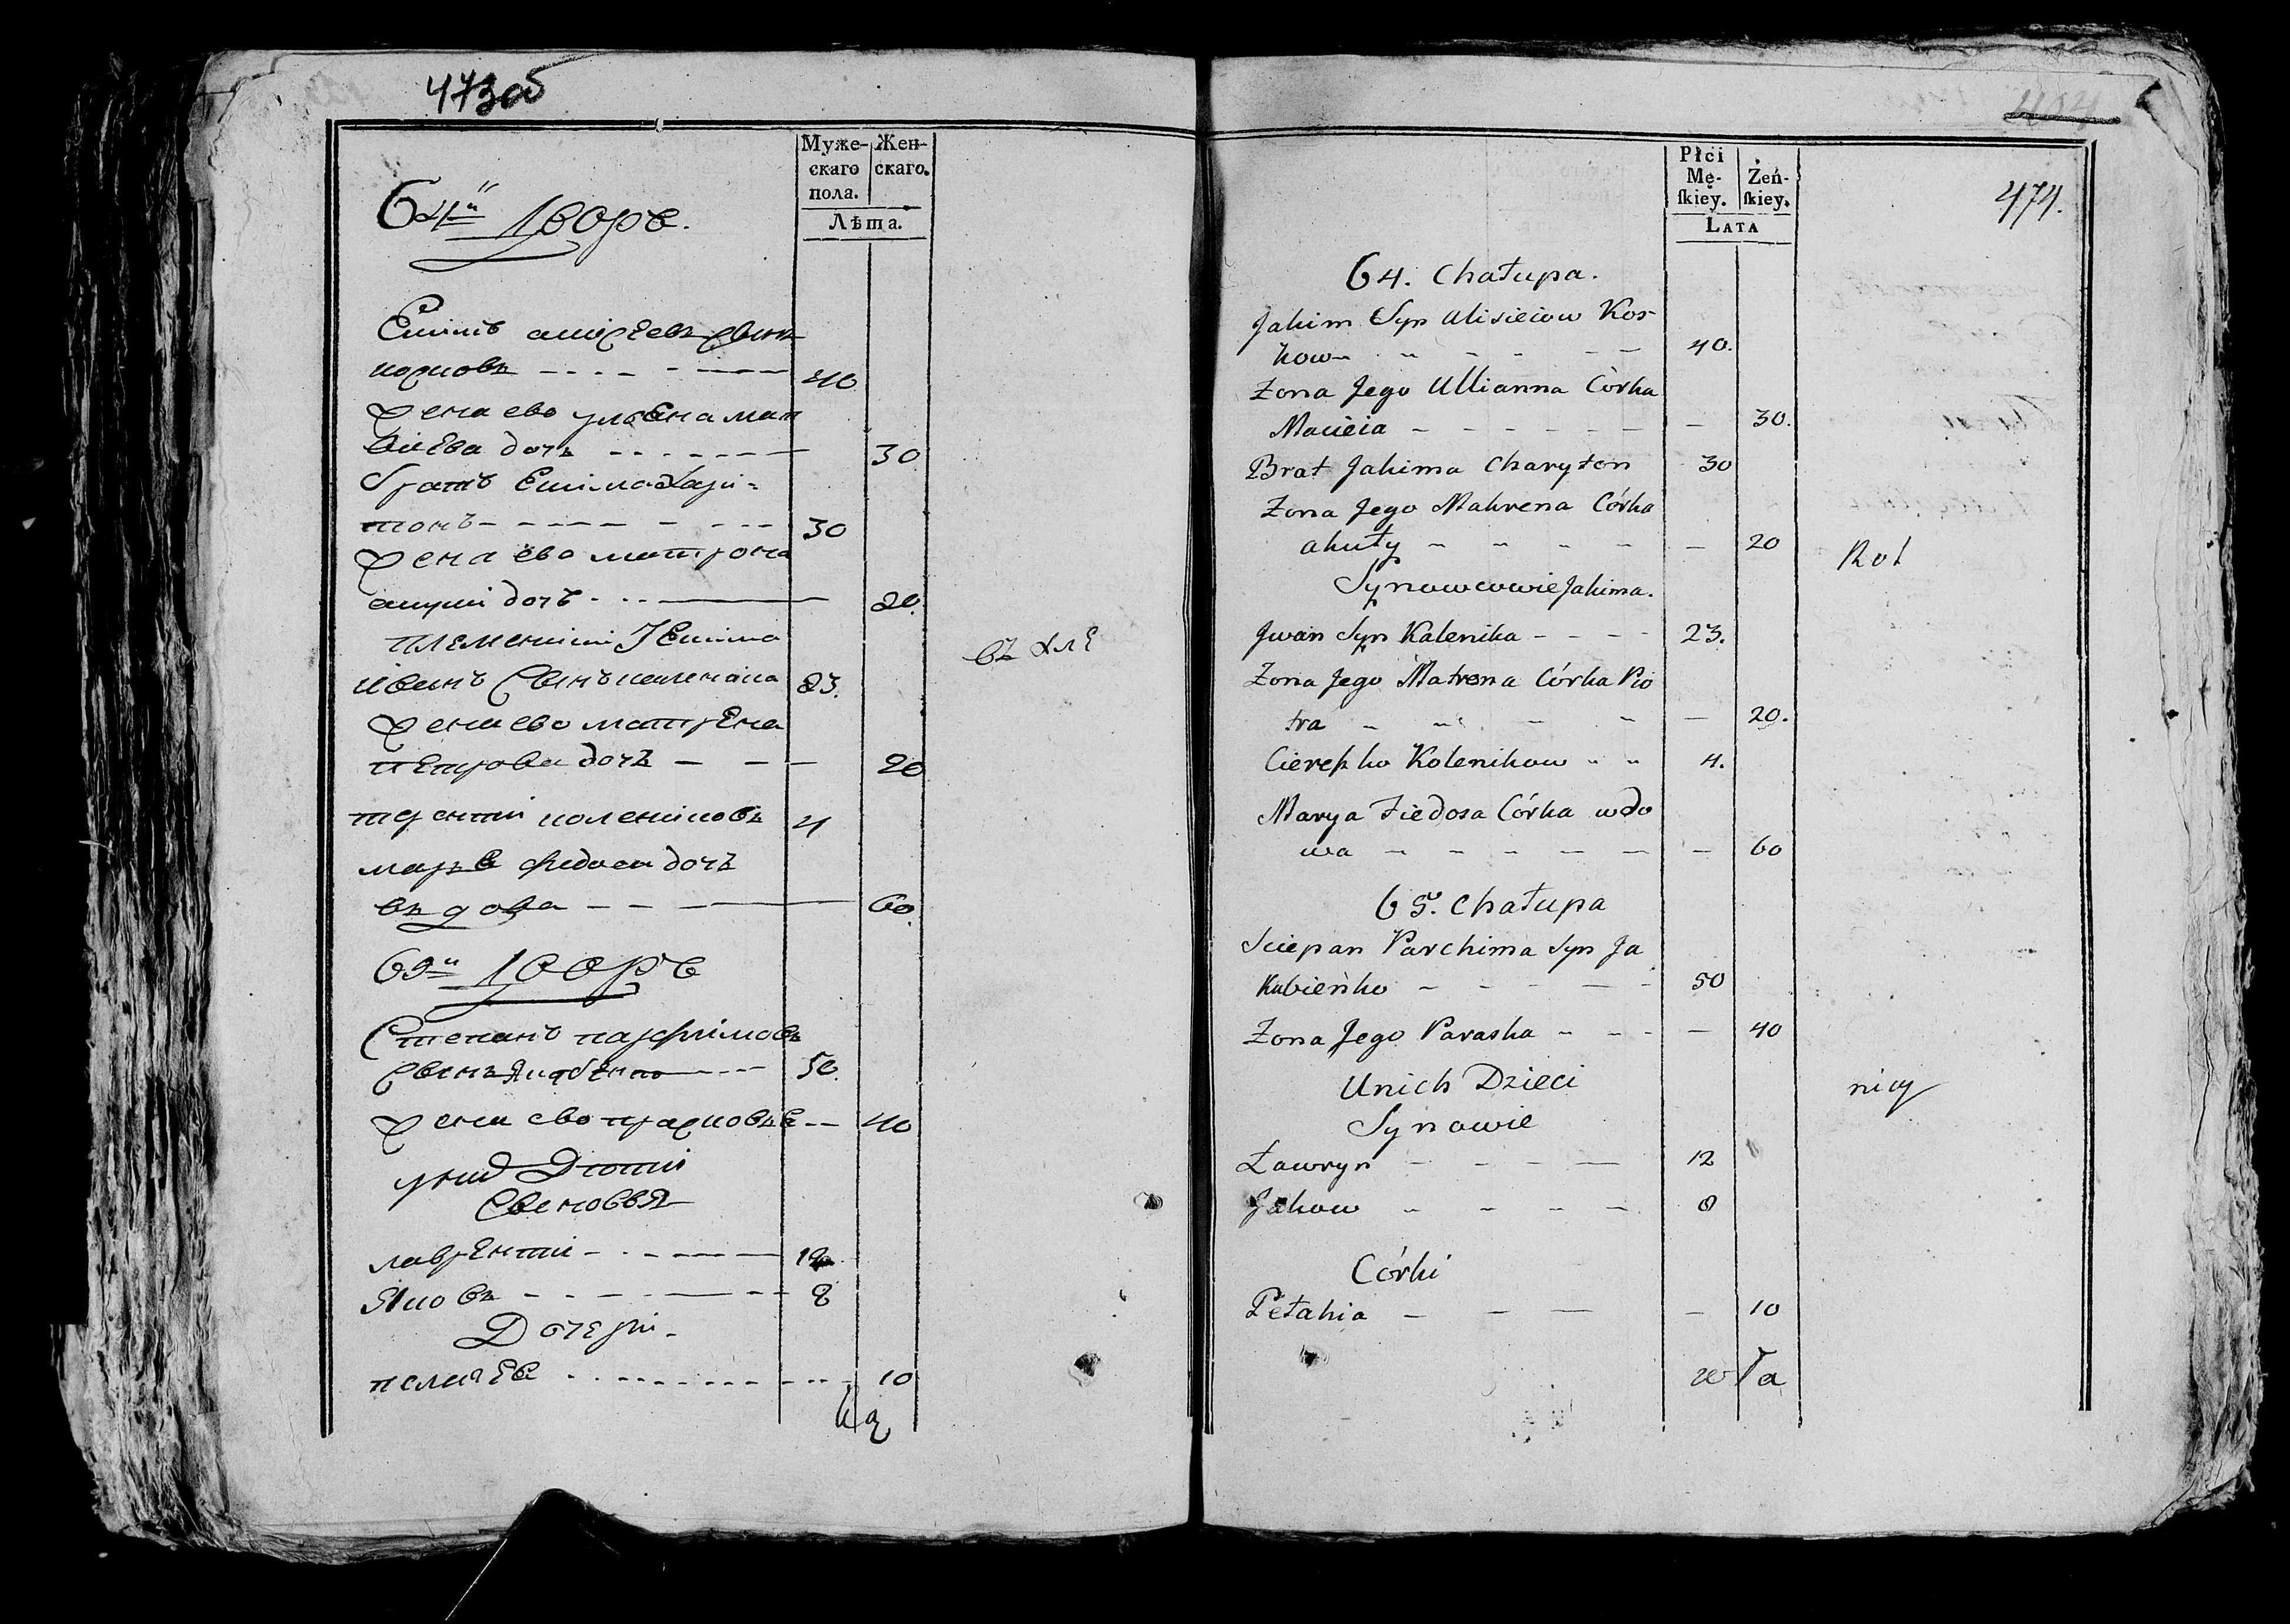 473об
Муже-
скаго
пола.
Жен-
скаго.
Лѣта.
64й дворъ.
40
жена ево улиана мат
виева дочъ
30
братъ Екима Хари-
тонъ
30
жена ево матрона
дочъ
20
племенники Екима
иванъ сынъ каленика
23.
жена ево матрена
петрова дочъ
20
терентии колениковъ
4
маръя федоса дочъ
въдова
60
65й дворъ
Степанъ парфимовъ
сынъ якубенко
50.
жена ево прасковъя
40
у них Дети
сыновья
лаврентии
12
Яковъ
8
Дочери
пелагея
10
въ хле
Płci
Mę-
ſkiey.
Żeń-
ſkiey.
LATA
474.
64. Chałupa.
Jakim Syn Alisieiow Kos-
kow
40.
Zona Jego Ullianna Córka
Macieia
30.
Brat Jakima Charyton
30
Zona Jego Mahrena Córka
akuły
20
Rot
Synowcowie Jakima.
Jwan Syn Kalenika
23.
Zona Jego Matrona Córka Pio
tra
20.
Ciereszko Kolenikow
4.
Marya Fiedosa Córka wdo
wa
60
65. Chałupa
Sciepan Parchima Syn Ja
kubieńko
50
Zona Jego Paraska
40
Unich Dzieci
Synowie
nicy
Ławryn
12
Jakow
8
Córki
Pełahia
10